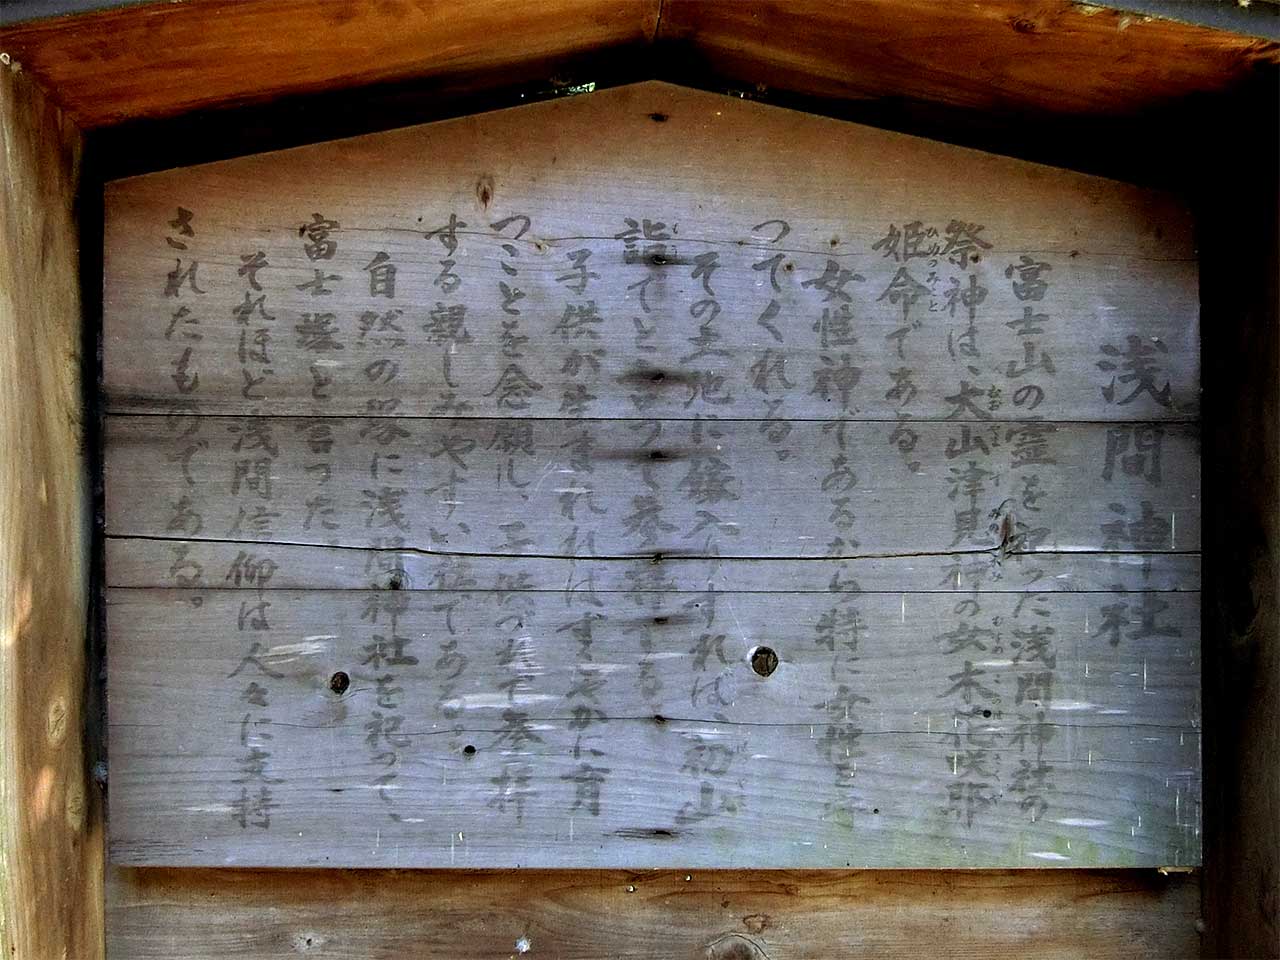 浅間神社
富士山の霊を祀った浅間神社の
祭神は、大山津見神の女木花咲耶
姫命であある。
女性神であるから特に女性を守
つてくれる。
その土地に嫁入りすれば、初山
詣てと言つて参拝する。
子供が生まれればすこやかに育
つことを念願し、子供づれで参拝
する親しみやすい社である。
自然の塚に浅間神社を祀って、
富士塚と言った。
それほど浅間信仰は人々に支持
されたものである。